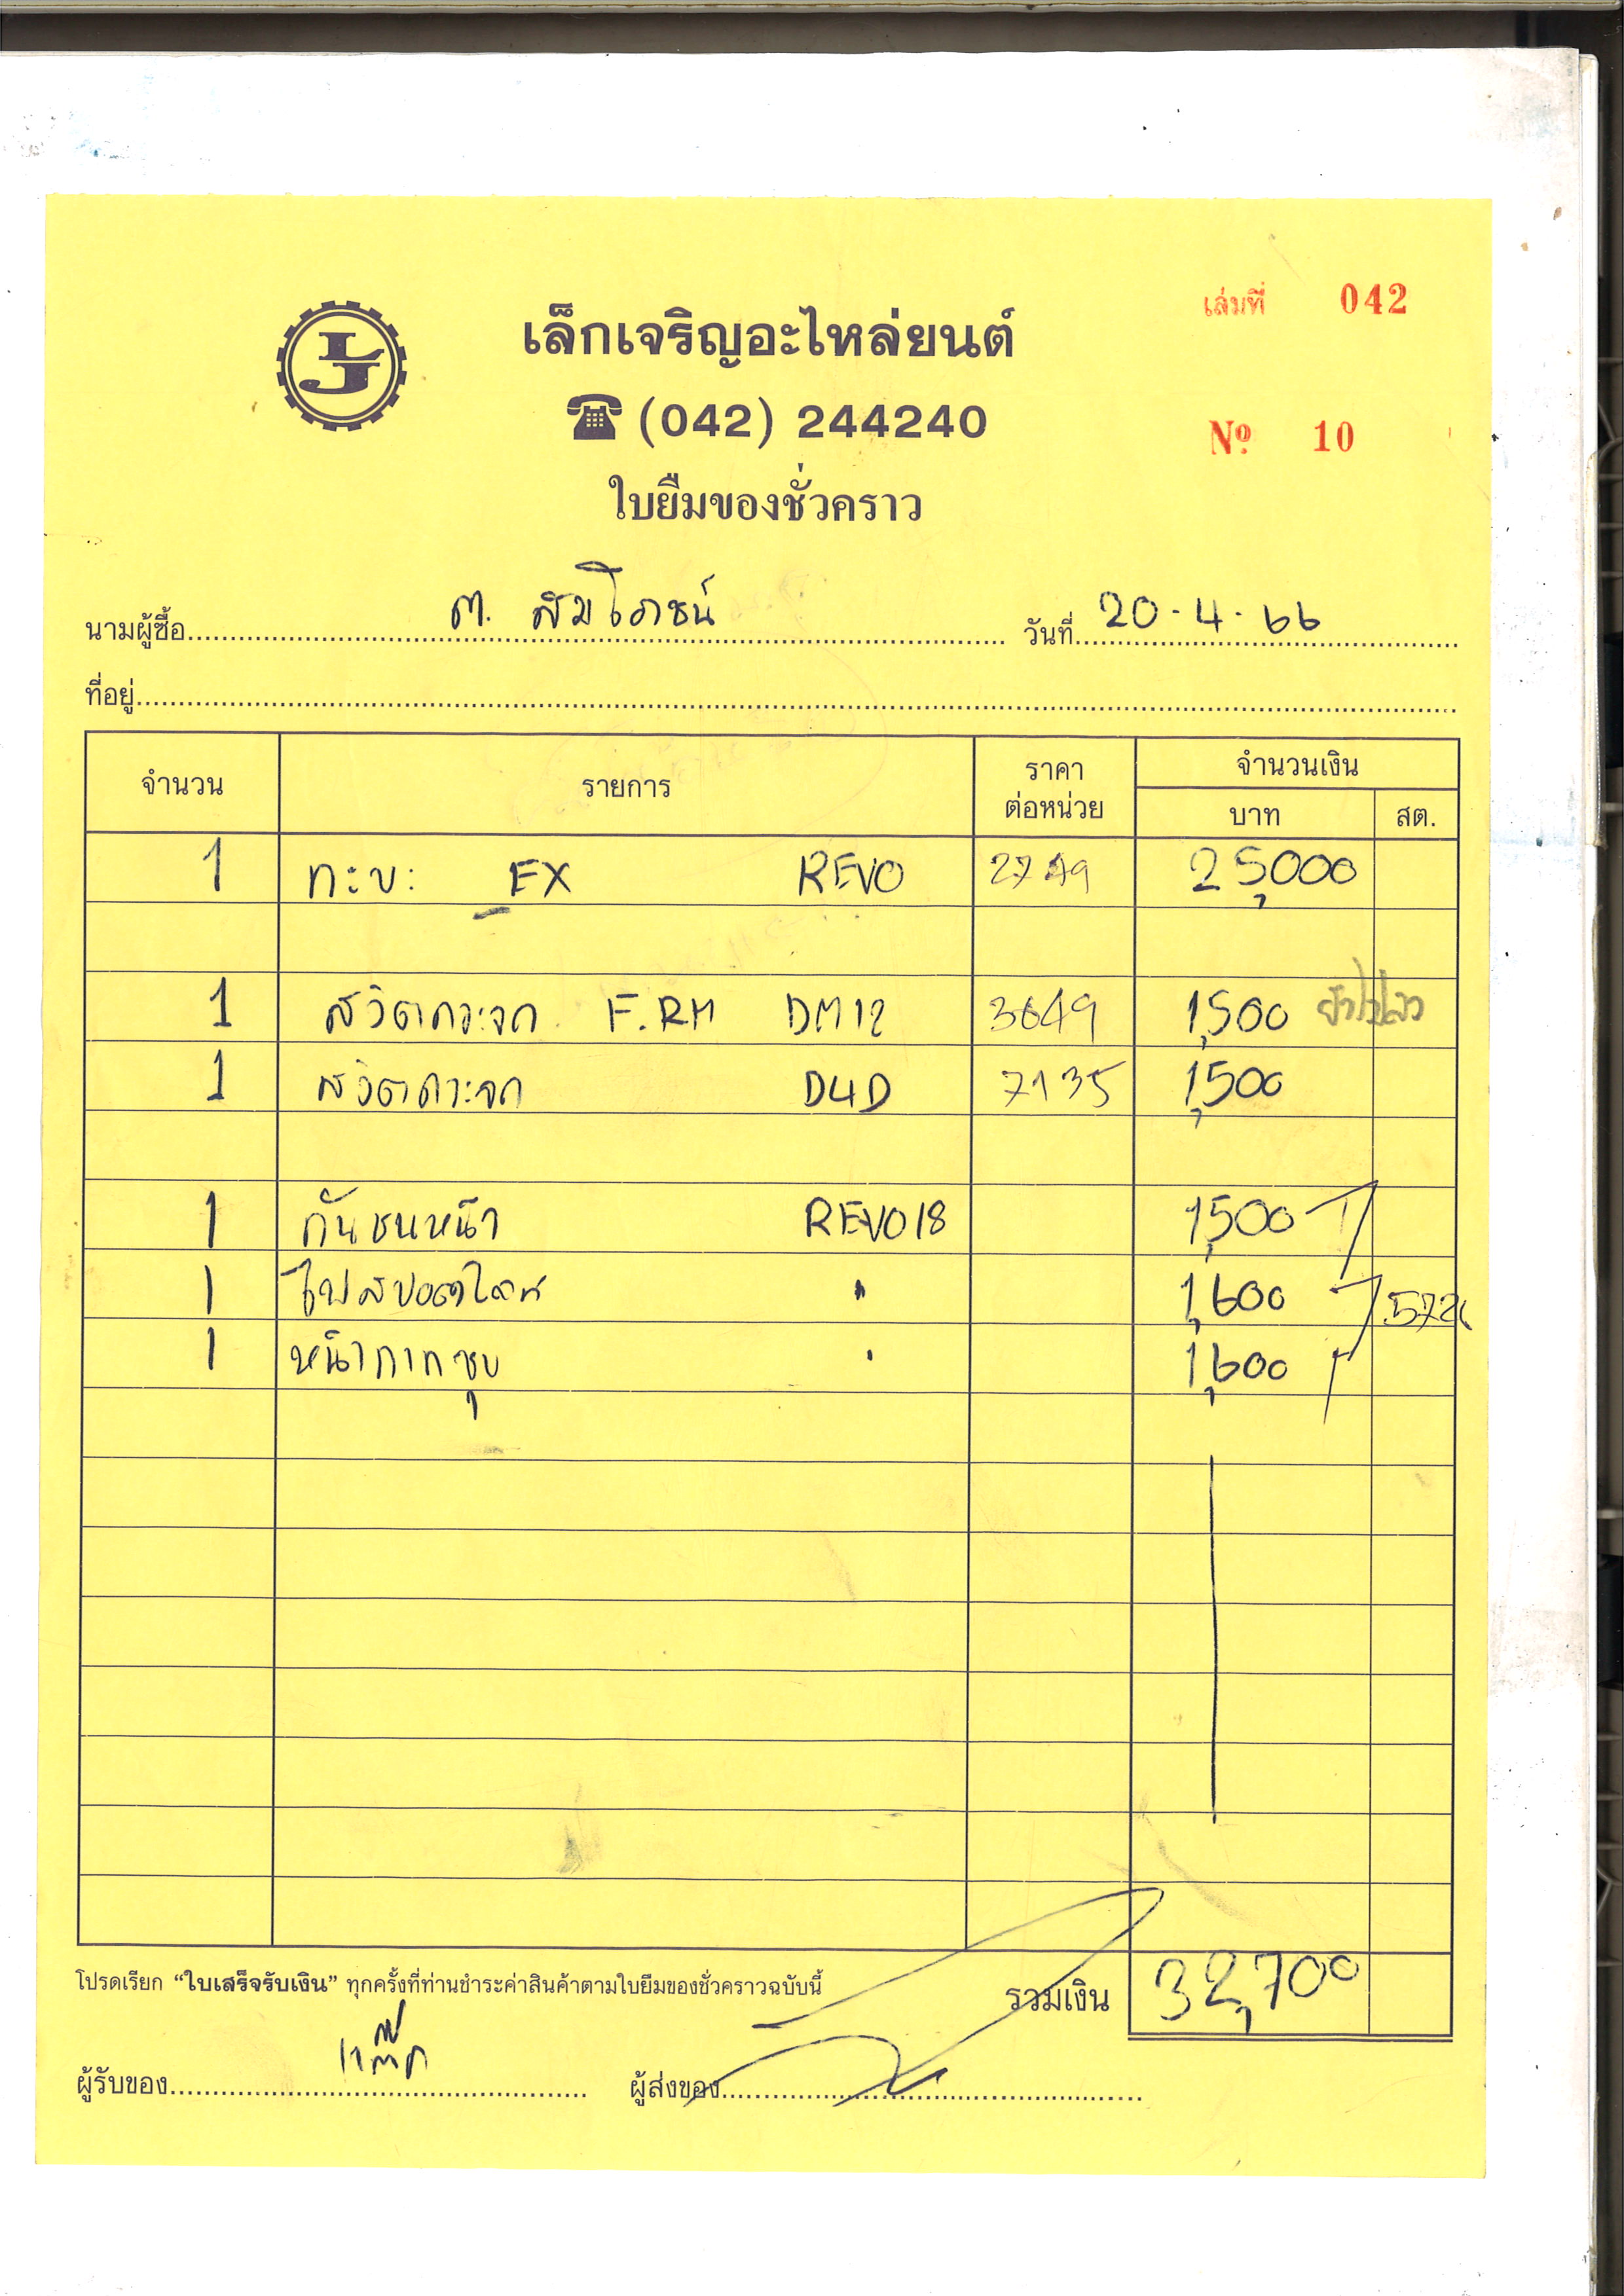 เล่มที่ 042
LJ
เล็กเจริญอะไหล่ยนต์
☎ (042) 244240
Nº 10
ใบยืมของชั่วคราว
นามผู้ซื้อ ต. สัมโภชน์ วันที่ 20-4-66
ที่อยู่
จำนวน รายการ ราคาต่อหน่วย จำนวนเงิน
บาท สต.
1 กะบะ EX REVO 2749 25,000
1 สวิตกระจก F.RH DM12 3649 1,500
1 สวิตกระจก D4D 7135 1,500
1 กันชนหน้า REVO18 1,500
1 ไฟสปอตไลท์ " 1,600
1 หน้ากากชุบ " 1,600
โปรดเรียก “ใบเสร็จรับเงิน” ทุกครั้งที่ท่านชำระค่าสินค้าตามใบยืมของชั่วคราวฉบับนี้ รวมเงิน 32,700
ผู้รับของ ผู้ส่งของ